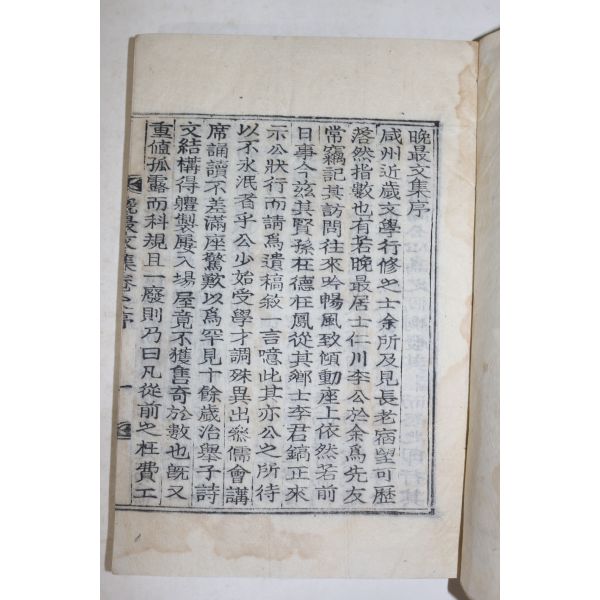 晩最文集序
咸州近歲文學行修之士余所及見長老宿望可歷
落然指數也有若晩最居士仁川李公於余爲先友
常竊記其訪問往來吟暢風致傾動座上依然若前
日事今玆其賢孫在德在鳳從其鄕士李君鎬正來
示公狀行而請爲遺稿敘一言噫此其亦公之所待
以不水泯者乎公少始受學才調殊異出參儒會講
席誦讀不差滿座驚歎以爲罕見十餘歲治擧子詩
文結構得軆製屢入場屋竟不獲售奇於數也旣又
重値孤露而科規且一廢則乃曰凡從前之枉費工
晩最文集卷之序
一